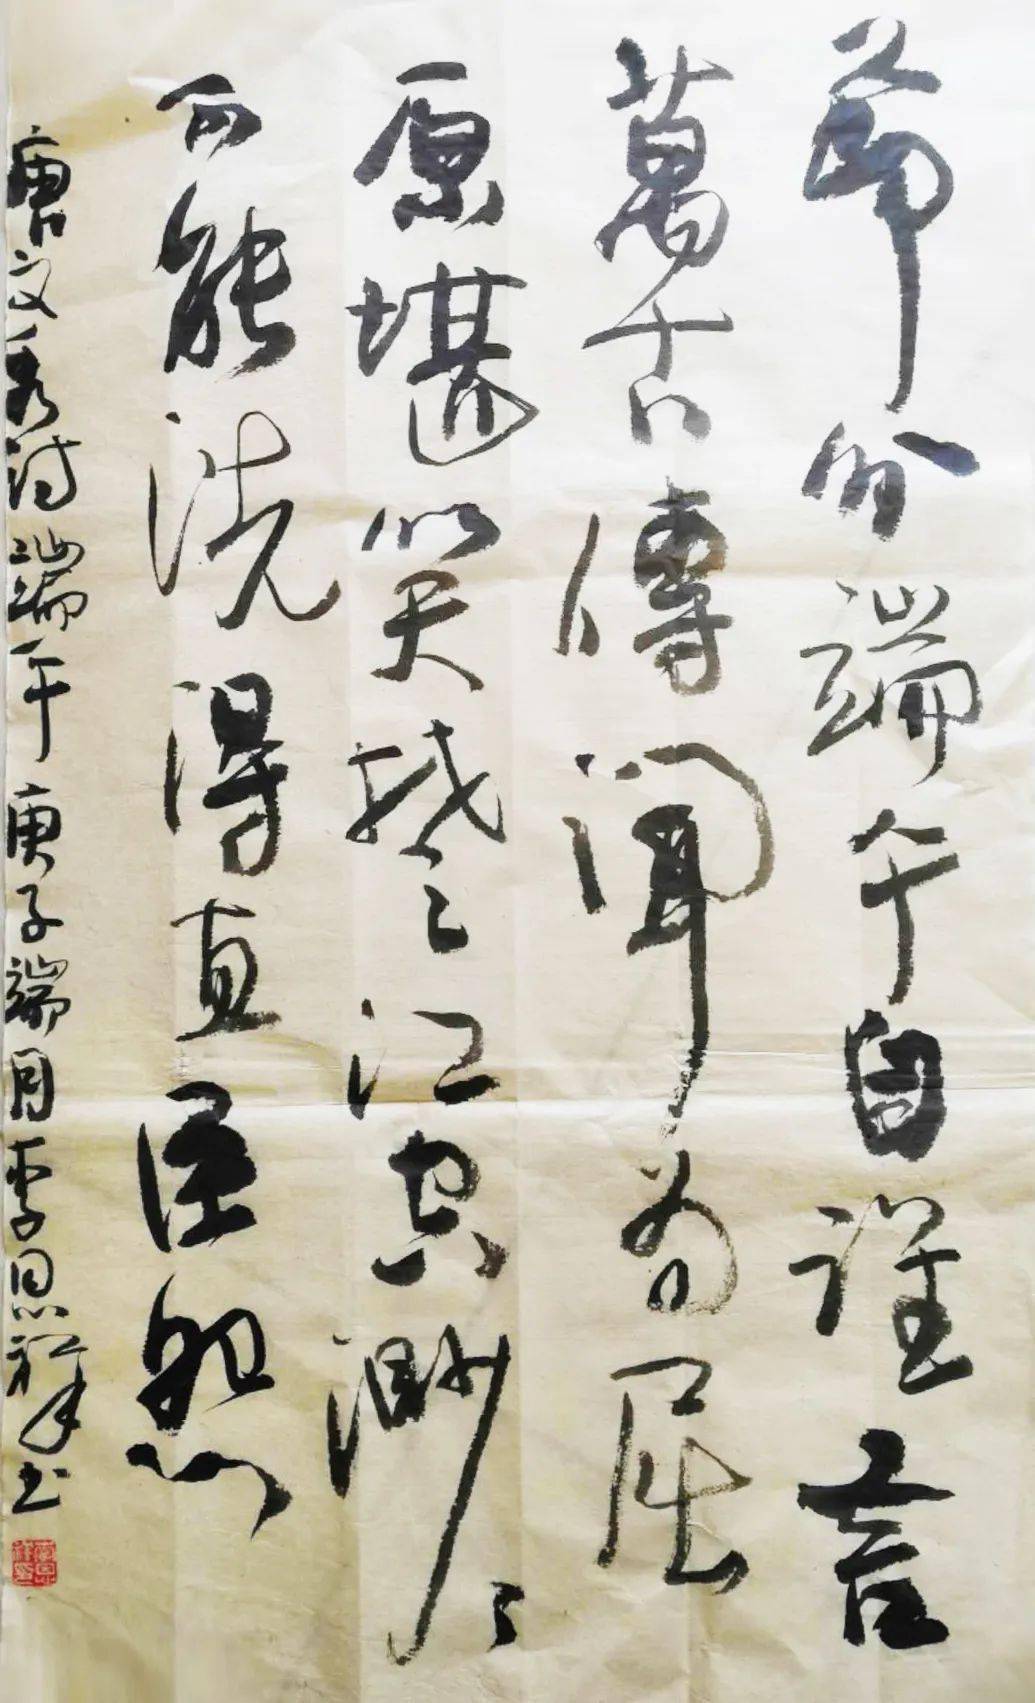 節分端午自誰言
萬古傳聞為屈
原堪笑楚江空渺〻
不能洗得直臣冤
唐文秀詩端午庚子端月李思祥書